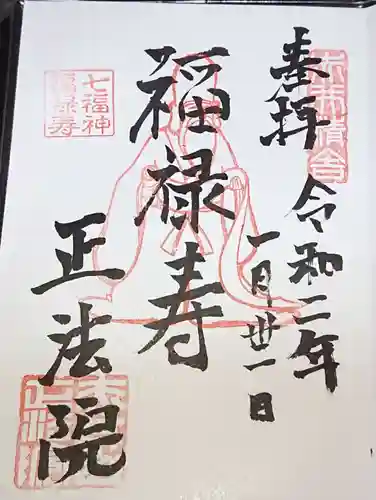 奉拝
令和二年
一月丗一日
福禄寿
正法院
七福神
福禄寿